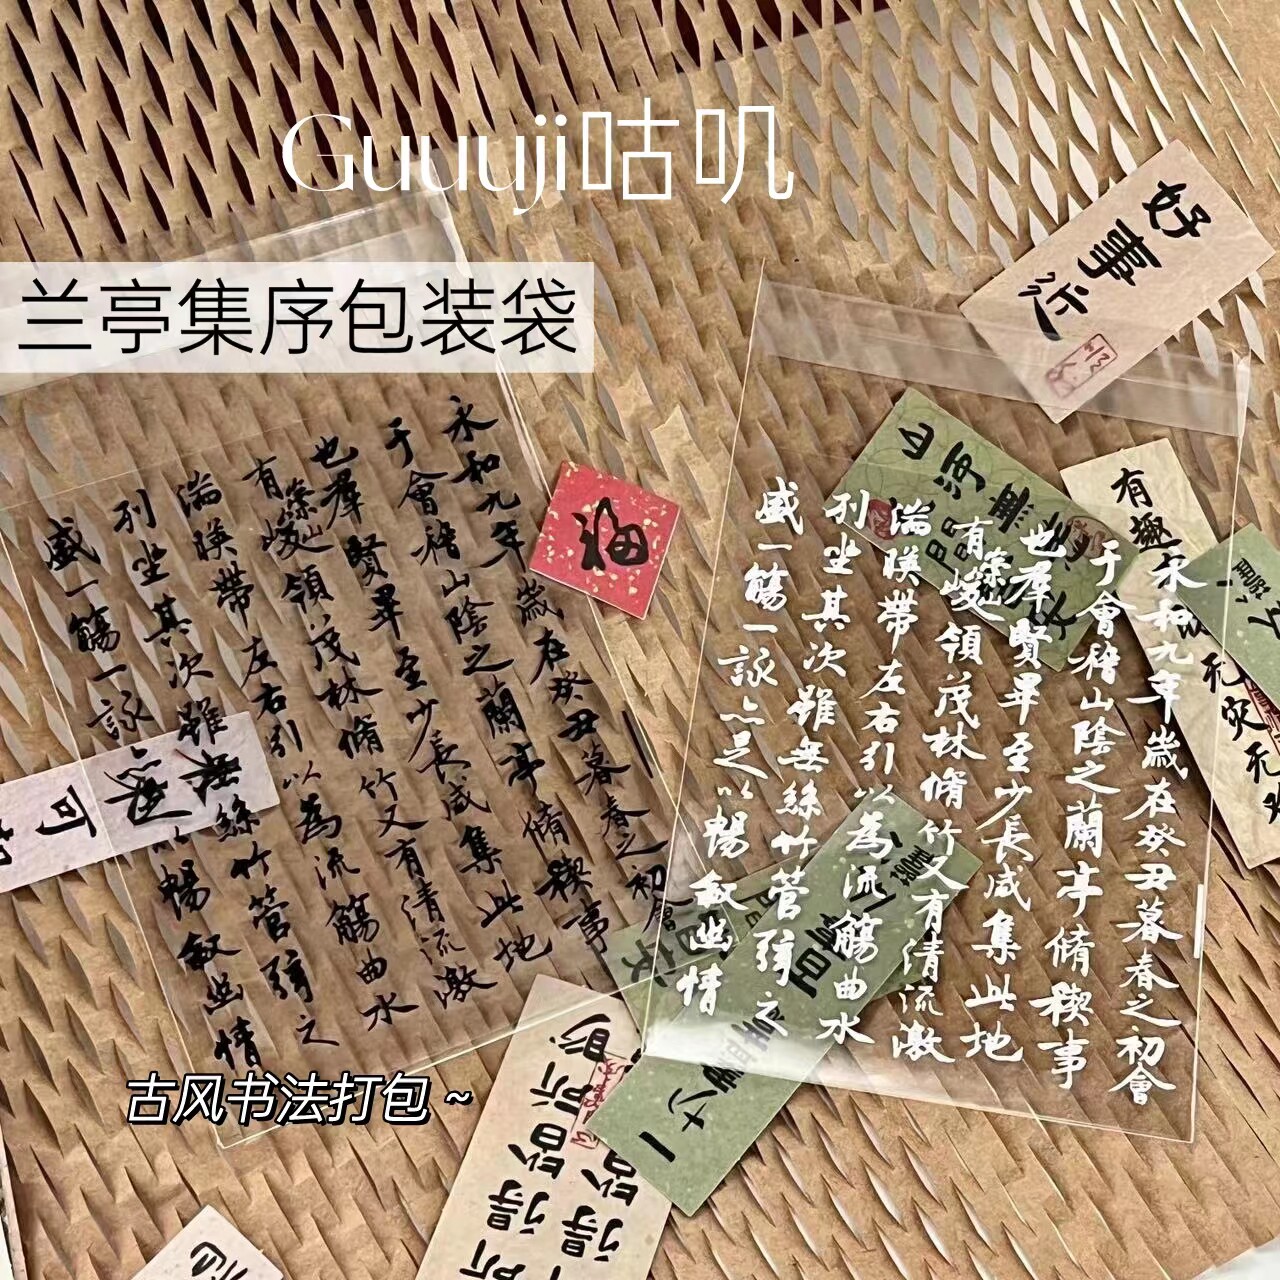 Guuuji咕叽
兰亭集序包装袋
好事近
福
永和九年歲在癸丑暮春之初會
于會稽山陰之蘭亭脩稧事
也羣賢畢至少長咸集此地
有崇山峻領茂林脩竹又有清流激
湍暎帶左右引以為流觴曲水
列坐其次雖無絲竹管弦之
盛一觴一詠亦足以暢敘幽情
永和九年歲在癸丑暮春之初會
于會稽山陰之蘭亭脩稧事
也羣賢畢至少長咸集此地
有崇山峻領茂林脩竹又有清流激
湍暎帶左右引以為流觴曲水
列坐其次雖無絲竹管弦之
盛一觴一詠亦足以暢敘幽情
山河無恙
有趣
无灾无
可
所得皆所
所得皆所
古风书法打包~